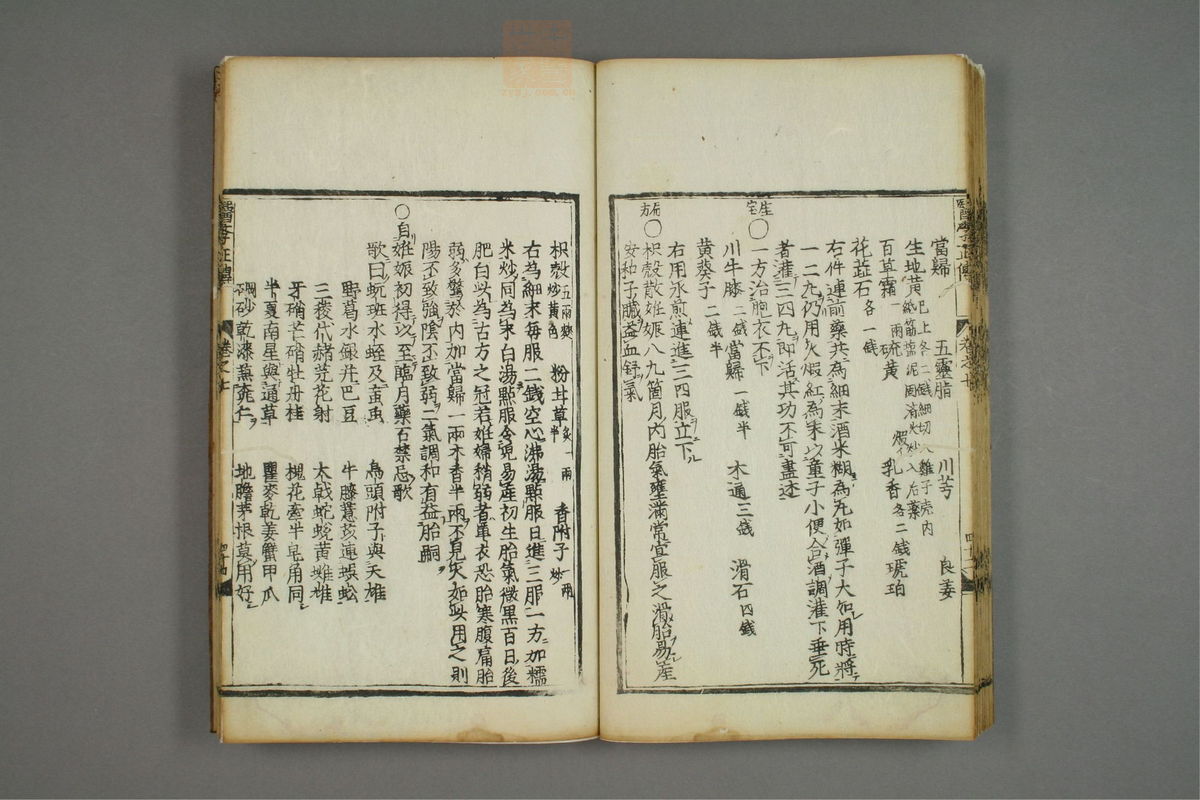 當歸 五靈脂 川芎 良姜
生地黃 已上各二錢細切入雞子壳內紙筋塩泥固濟火煅入后藥
百草霜一兩 硫黃 乳香各二錢 琥珀
花蕋石各一錢
右件連前藥共為細末酒米糊為丸如彈子大如用時將
一二丸仍用火煅紅為末以童子小便合酒調灌下垂死
者灌三四丸即活其功不可盡述
生宝
○一方治胞衣不下
川牛膝二錢 當歸一錢半 木通三錢 滑石四錢
黃葵子二錢半
右用水煎連進三四服立下
方
○枳殼散姙娠八九箇月內胎氣壅滿常宜服之滑胎易產
安和子臟益血舒氣
枳殼五兩麩炒黃色 粉甘草炙一兩半 香附子炒一兩
右為細末每服二錢空心沸湯點服日進三服一方加糯
米炒同為末白湯點服令兒易產初生胎氣微黑百日後
肥白此為古方之冠若姙婦稍弱者單衣恐胎寒腹痛胎
弱多驚於內加當歸一兩木香半兩不見火如此用之則
陽不致強陰不致弱二氣調和有益胎嗣
○自姙娠初得以至臨月藥石禁忌歌
歌曰蚖班水蛭及䖟虫 烏頭附子與天雄
野葛水銀并巴豆 牛膝薏苡連蜈蚣
三稜代赭芫花射 大戟蛇蛻黃雌雄
牙硝芒硝牡丹桂 槐花牽牛皂角同
半夏南星與通草 瞿麥乾姜蟹甲爪
硇砂乾漆蒸 仁 地膽茅根莫用好
醫學正傳
卷之七